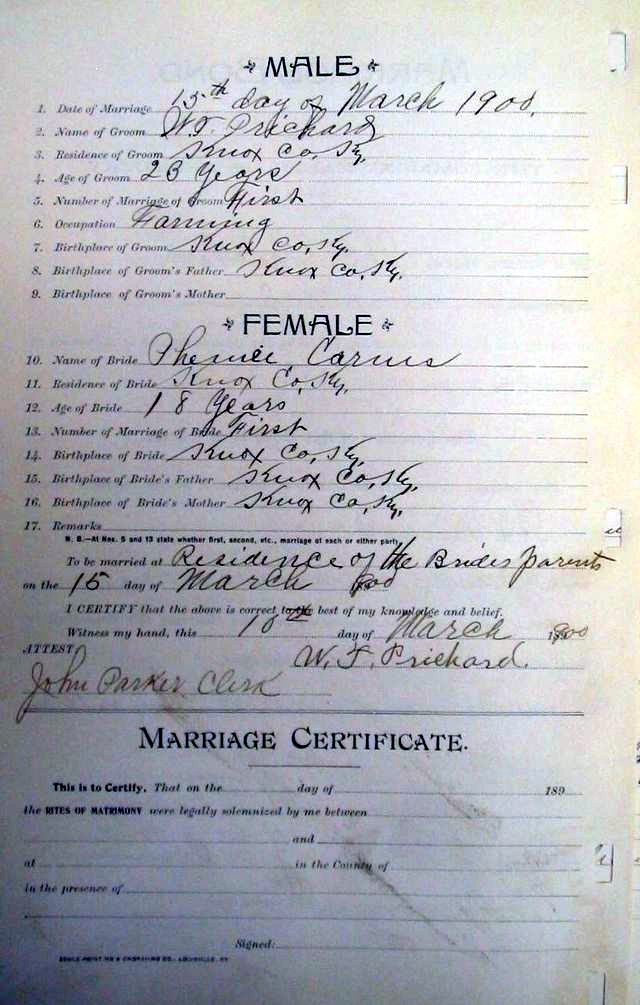 MALE
1. Date of Marriage 15th day of March 1900.
2. Name of Groom W.F. Prichard
3. Residence of Groom Knox Co, Ky.
4. Age of Groom 23 Years
5. Number of Marriage of Groom First
6. Occupation Farming
7. Birthplace of Groom Knox Co, Ky.
8. Birthplace of Groom's Father Knox Co, Ky.
9. Birthplace of Groom's Mother
FEMALE
10. Name of Bride
11. Residence of Bride Knox Co, Ky.
12. Age of Bride 18 Years
13. Number of Marriage of Bride First
14. Birthplace of Bride Knox Co, Ky.
15. Birthplace of Bride's Father Knox Co, Ky.
16. Birthplace of Bride's Mother Knox Co, Ky.
17. Remarks
N. B.—At Nos. 5 and 13 state whether first, second, etc., marriage of each or either party.
To be married at Residence of the Brides parents
on the 15 day of March 1900
I CERTIFY that the above is correct to the best of my knowledge and belief.
Witness my hand, this 10th day of March 1900
ATTEST W. F. Prichard.
John Parker Clerk
MARRIAGE CERTIFICATE.
This is to Certify, That on the day of 189
the RITES OF MATRIMONY were legally solemnized by me between
and
at in the County of
in the presence of
Signed:
PRINTING & ENGRAVING CO., LOUISVILLE, KY.